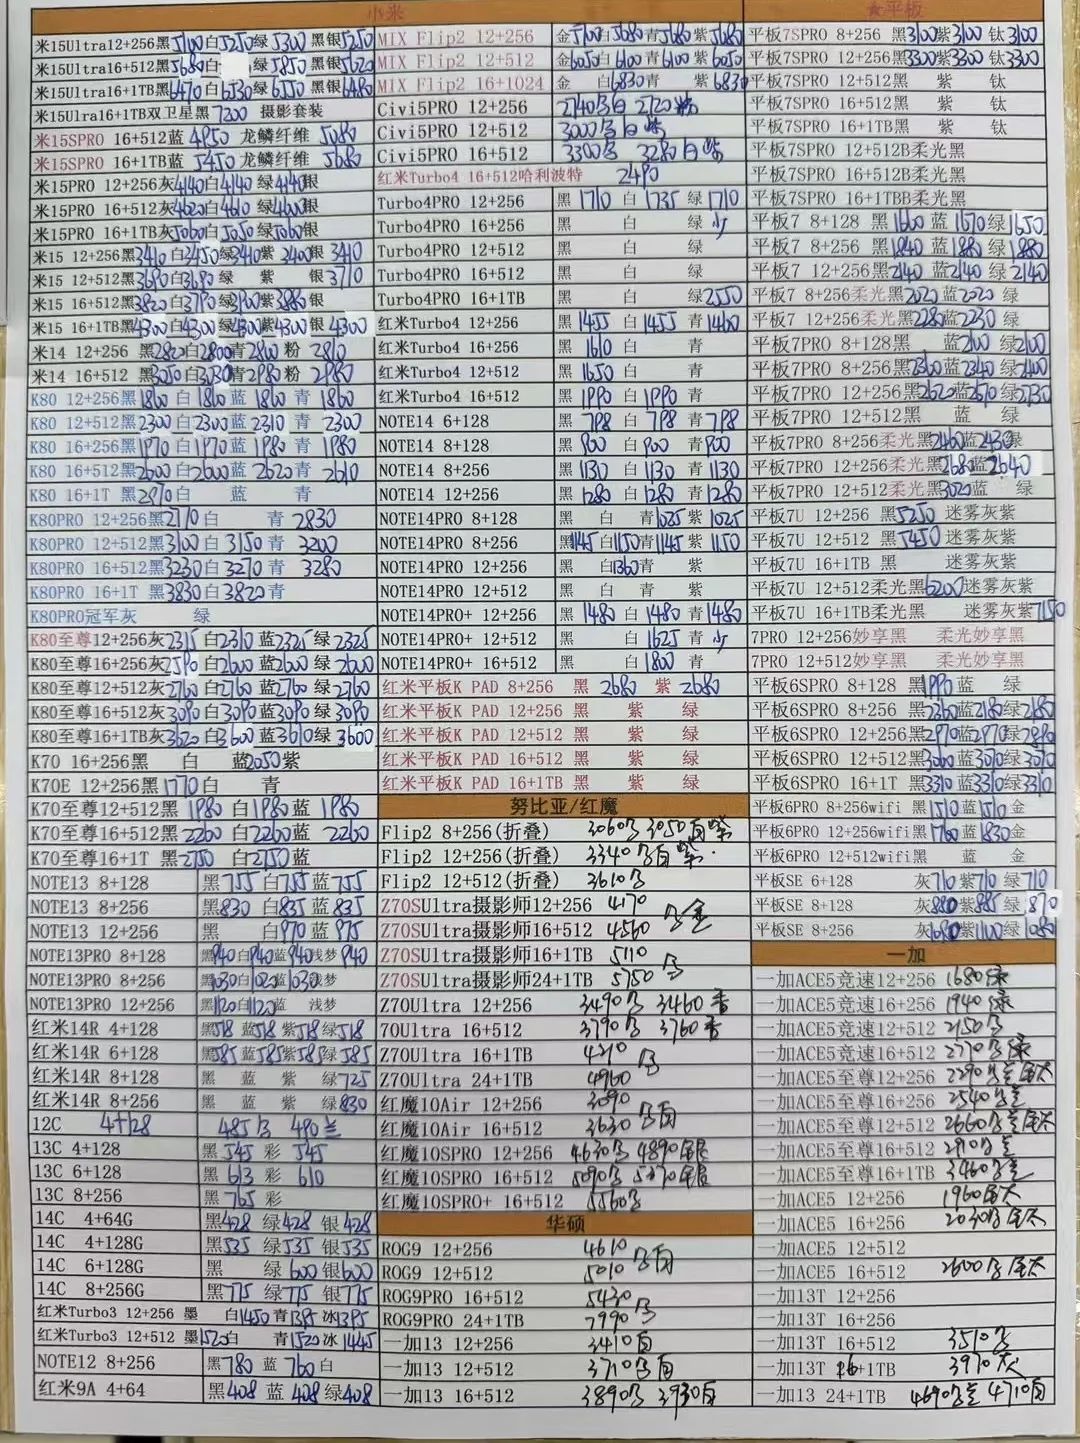 小米
米15Ultra12+256黑5100白5250绿5300 黑银5250
米15Ultra16+512黑5680白 绿5850 黑银5620
米15Ultra16+1TB黑6470白6530绿6550 黑银6480
米15Ulra16+1TB双卫星黑 7200 摄影套装
米15SPRO 16+512蓝 4950 龙鳞纤维 5080
米15SPRO 16+1TB蓝 5450 龙鳞纤维 5680
米15PRO 12+256灰4140白4140 绿4140银
米15PRO 16+512灰4620白4610 绿4600银
米15PRO 16+1TB灰5060白5050绿5060银
米15 12+256黑3410 白3450绿3410紫 3400银 3410
米15 12+512黑3690白3690 绿 紫 银3710
米15 16+512黑3820白3790绿3900紫3880银
米15 16+1TB黑4300白4300绿4300紫4300 银 4300
米14 12+256 黑2820白2800青2860 粉 2810
米14 16+512 黑3050 白3030青2980 粉 2980
K80 12+256黑1860 白 1860 蓝 1860 青 1860
K80 12+512黑2300 白2300 蓝 2310 青 2300
K80 16+256黑1970 白1970 蓝 1980 青 1980
K80 16+512黑2600 白2600 蓝 2620 青 2610
K80 16+1T 黑2890白 蓝 青
K80PRO 12+256黑2770白 青 2830
K80PRO 12+512黑3100白 3150 青 3200
K80PRO 16+512黑3230白 3270 青 3280
K80PRO 16+1T 黑3830白 3820青
K80PRO冠军灰 绿
K80至尊12+256灰2315 白2310 蓝2325 绿 2325
K80至尊16+256灰2590 白2600 蓝2600 绿 2600
K80至尊12+512灰2760 白2760 蓝2760 绿 2760
K80至尊16+512灰3090 白3090 蓝3090 绿 3090
K80至尊16+1TB灰3620 白3600 蓝3610 绿 3600
K70 16+256黑 白 蓝2050紫
K70E 12+256黑1770白 青
K70至尊12+512黑 1980 白1980蓝 1980
K70至尊16+512黑 2260 白2260蓝 2260
K70至尊16+1T 黑2750 白2750蓝
NOTE13 8+128 黑755 白755蓝755
NOTE13 8+256 黑830 白835 蓝 835
NOTE13 12+256 黑 白970 蓝 975
NOTE13PRO 8+128 黑940白940蓝940浅梦 940
NOTE13PRO 8+256 黑1030白1020蓝1030浅梦
NOTE13PRO 12+256 黑1120白1120蓝 浅梦
红米14R 4+128 黑518 蓝518 紫518 绿518
红米14R 6+128 黑585 蓝585紫585绿585
红米14R 8+128 黑 蓝 紫 绿725
红米14R 8+256 黑 蓝 紫 绿830
12C 4+128 485黑 490蓝
13C 4+128 黑 545 彩 545
13C 6+128 黑 613 彩 610
13C 8+256 黑 765 彩
14C 4+64G 黑428 绿428 银428
14C 4+128G 黑535 绿535 银535
14C 6+128G 黑 绿600 银600
14C 8+256G 黑775 绿775 银775
红米Turbo3 12+256 墨 白1450青1395冰1395
红米Turbo3 12+512 墨1520白 青1520冰1445
NOTE12 8+256 黑780 蓝 760 白
红米9A 4+64 黑408 蓝 408 绿408
MIX Flip2 12+256 金5700白5680青5680紫5680
MIX Flip2 12+512 金6050白6100青6100 紫6050
MIX Flip2 16+1024 金 白6830青 紫6830
Civi5PRO 12+256 2740黑白 2720粉
Civi5PRO 12+512 3000黑白紫
Civi5PRO 16+512 3300黑 3280白紫
红米Turbo4 16+512哈利波特 2490
Turbo4PRO 12+256 黑 1710 白 1735 绿1710
Turbo4PRO 16+256 黑 白 绿少
Turbo4PRO 12+512 黑 白 绿
Turbo4PRO 16+512 黑 白 绿
Turbo4PRO 16+1TB 黑 白 绿2550
红米Turbo4 12+256 黑1455 白 1455 青1460
红米Turbo4 16+256 黑 1610 白 青
红米Turbo4 12+512 黑 1650 白 青
红米Turbo4 16+512 黑 1990 白 1990 青
NOTE14 6+128 黑 798 白 798 青798
NOTE14 8+128 黑 900 白 900 青900
NOTE14 8+256 黑 1130 白 1130 青1130
NOTE14 12+256 黑1280 白1280 青1280
NOTE14PRO 8+128 黑 白 青1025紫1025
NOTE14PRO 8+256 黑1145白1150青1145 紫 1150
NOTE14PRO 12+256 黑 白1360青 紫
NOTE14PRO 12+512 黑 白 青 紫
NOTE14PRO+ 12+256 黑 1480 白 1480 青1480
NOTE14PRO+ 12+512 黑 白1625 青 少
NOTE14PRO+ 16+512 黑 白1800 青
红米平板K PAD 8+256 黑 2680 紫 2680
红米平板K PAD 12+256 黑 紫 绿
红米平板K PAD 12+512 黑 紫 绿
红米平板K PAD 16+512 黑 紫 绿
红米平板K PAD 16+1TB 黑 紫 绿
努比亚/红魔
Flip2 8+256(折叠) 3060黑 3050白紫
Flip2 12+256(折叠) 3340黑白紫
Flip2 12+512(折叠) 3610黑
Z70SUltra摄影师12+256 4170
Z70SUltra摄影师16+512 4560 黑金
Z70SUltra摄影师16+1TB 5110
Z70SUltra摄影师24+1TB 5750 黑
Z70Ultra 12+256 3490黑 3460青
70Ultra 16+512 3790黑 3760青
Z70Ultra 16+1TB 4210
Z70Ultra 24+1TB 4960 黑
红魔10Air 12+256 3090
红魔10Air 16+512 3630 黑白
红魔10SPRO 12+256 4630黑 4890银
红魔10SPRO 16+512 5090黑 5370银
红魔10SPRO+ 16+512 5560黑
华硕
ROG9 12+256 4610
ROG9 12+512 5010 黑白
ROG9PRO 16+512 5430
ROG9PRO 24+1TB 7990 黑
一加13 12+256 3410白
一加13 12+512 3710黑白
一加13 16+512 3890黑 3930白
★平板
平板7SPRO 8+256 黑3100紫3100 钛3100
平板7SPRO 12+256黑3300紫3300 钛3300
平板7SPRO 12+512黑 紫 钛
平板7SPRO 16+512黑 紫 钛
平板7SPRO 16+1TB黑 紫 钛
平板7SPRO 12+512B柔光黑
平板7SPRO 16+512B柔光黑
平板7SPRO 16+1TBB柔光黑
平板7 8+128 黑1600 蓝1670绿1650
平板7 8+256 黑1840 蓝1880 绿1880
平板7 12+256黑2140 蓝2140 绿2140
平板7 8+256柔光黑2020 蓝2020 绿
平板7 12+256柔光黑2280蓝2230 绿
平板7PRO 8+128黑 蓝2100 绿2100
平板7PRO 8+256黑2360蓝2340 绿2400
平板7PRO 12+256黑2620蓝2670绿2730
平板7PRO 12+512黑 蓝 绿
平板7PRO 8+256柔光黑2460蓝2430绿
平板7PRO 12+256柔光黑2680蓝2640
平板7PRO 12+512柔光黑3020蓝 绿
平板7U 12+256 黑5250 迷雾灰紫
平板7U 12+512 黑5450 迷雾灰紫
平板7U 16+1TB 黑 迷雾灰紫
平板7U 12+512柔光黑6200迷雾灰紫
平板7U 16+1TB柔光黑 迷雾灰紫7150
7PRO 12+256妙享黑 柔光妙享黑
7PRO 12+512妙享黑 柔光妙享黑
平板6SPRO 8+128 黑1990 蓝 绿
平板6SPRO 8+256 黑2360蓝2180绿2180
平板6SPRO 12+256黑2970蓝2970绿2890
平板6SPRO 12+512黑3060 蓝3070绿3070
平板6SPRO 16+1T 黑3310 蓝3310绿3310
平板6PRO 8+256wifi 黑1510蓝1510 金
平板6PRO 12+256wifi黑1760蓝1830金
平板6PRO 12+512wifi黑 蓝 金
平板SE 6+128 灰710紫710 绿710
平板SE 8+128 灰880紫885 绿870
平板SE 8+256 灰1080紫1100 绿1080
一加
一加ACE5竞速12+256 1680绿
一加ACE5竞速16+256 1940绿
一加ACE5竞速12+512 2150黑
一加ACE5竞速16+512 2770黑绿
一加ACE5至尊12+256 2290黑兰钛
一加ACE5至尊16+256 2540黑兰
一加ACE5至尊12+512 2660黑兰钛
一加ACE5至尊16+512 2910黑兰
一加ACE5至尊16+1TB 3460黑兰
一加ACE5 12+256 1960钛
一加ACE5 16+256 2030黑钛
一加ACE5 12+512
一加ACE5 16+512 2600黑钛
一加13T 12+256
一加13T 16+512 3510黑
一加13T 16+1TB 3970灰
一加13 24+1TB 4690黑兰 4710白